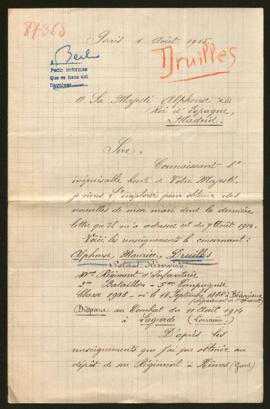 87363
Paris 6 Août 1915
Druilles
Berl
Pedir informes
A Sa Majesté Alphonse XIII
Roi d'Espagne,
Madrid.
Sire,
Connaissant l'
inépuisable bonté de Votre Majesté,
je viens l'implorer pour obtenir des
nouvelles de mon mari dont la dernière
lettre qu'il m'a adressée est du 7 Août 1914.
Voici les renseignements le concernant:
Alphonse, Maurice, Druilles
Régiment d'Infanterie
2me Bataillon - 5me Compagnie
Classe 1908 - né le 18 Septembre 1888 à
Disparu au Combat du 11 Août 1914
à Lagarde (Lorraine)
D'après les
renseignements que j'ai pu obtenir au
dépôt de son Régiment à Nîmes (Gard)